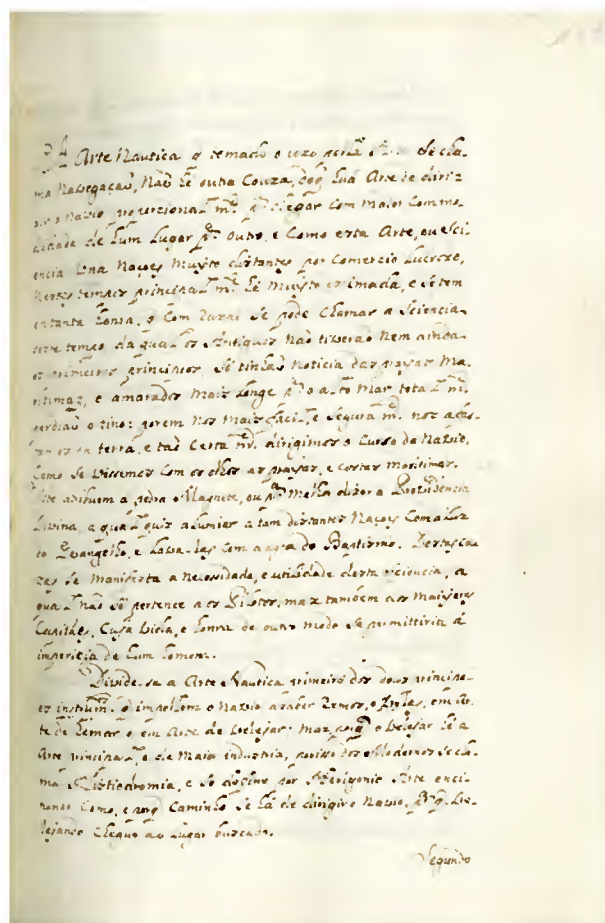 A Arte Nautica q̃ tomado o uzo geral se cha-
ma Navegaçaõ, Naõ hé outra Couza, doq̃ hua Arte de dirigir
o Navio proporcionalm.te p.ª chegar Com maior Commo-
didade de hum Lugar p.ª outro, e Como esta Arte, ou Sci-
encia hua Naçoes Muyto distantes por Comercio Lucrozo,
Nestes tempos principalm.te hé Muyto estimada, e se tem
em tanta honra, q̃ Com Razaõ Se pode Chamar a Sciencia
deste tempo da qual os Antiguos Naõ tiveraõ Nem ainda
os primeiros principios. Só tinhaõ Noticia das prayas Ma-
ritimaz, e amarados Mais Longe p.ª o alto Mar totalm.te
perdiaõ o tino: porem Nos Mais facil, e Seguram.te nos afas-
tamos da terra, e taõ Certam.te dirigimos o Curso do Navio,
Como Se Vissemos Com os olhos as prayas, e Costas Maritimas.
Isto atribuem a pedra Magnete, ou p.ª Melhor dizer a Providencia
Divina, a qual quiz alumiar a tam distantes Naçoes Com a Luz
do Evangelho, e Lava-las Com a agoa do Baptismo. Destas Cou-
zas Se Manifesta a Necessidade, e utilidade desta Sciencia, a
qual Naõ Só pertence aos Pilotos, maz tambem aos Mais
Capitães, Cuja Vida, e honra de outro modo Se permittiria á
impericia de hum homem.
Divide-se a Arte Nautica primeiro dos dous principa-
es instrum.tos q̃ impellem o Navio a saber Remos, e Vélas, em Ar-
te de Remar e em Arte de Velejar: Maz porq̃ o Velejar hé a
Arte principal, e de Maior industria, por isso dos Modernos Se cha-
ma Histiodromia, e Se define por Herigonio Arte enci-
nando Como, e porq̃ Caminho Se há de dirigir o Navio, p.ª q̃ Ve-
lejando Chegue ao Lugar buscado.
Segundo